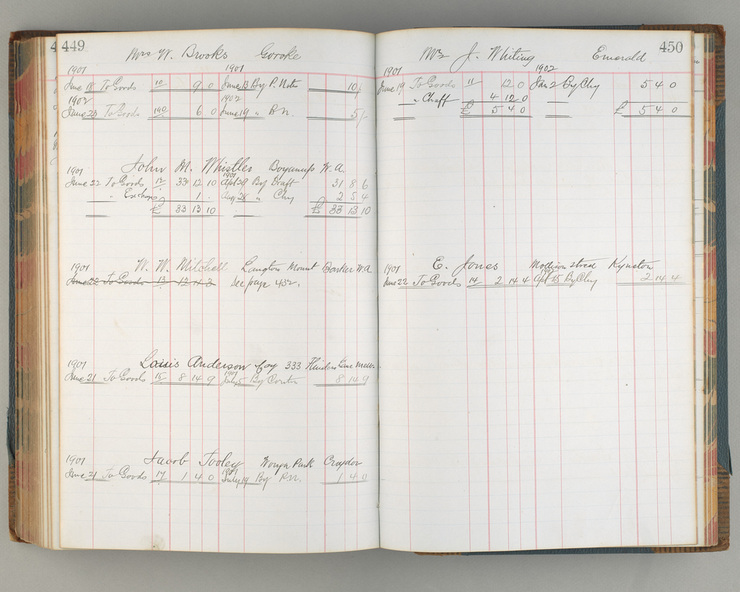 449
Mrs W. Brooks Gooroke
1901 1901
June 18 To Goods 10 9 0 June 13 By P. Note 10/-
1902 1902
June 23 To Goods 190 6 0 June 19 " P.N. 5/-
1901 John M. Whistler Boyanup W.A.
June 22 To Goods 12 33 12 10 Apl 30 By Draft 31 8 6
" Exchange 1 - Aug 28 " Chq 2 5 4
£ 33 13 10 £ 33 13 10
1901 W. W. Mitchell Langton Mount Barker W.A
June 22 To Goods 13 13 4 3 See page 452.
1901 Louis Anderson Coy 333 Flinders Lane Melb
June 21 To Goods 15 8 14 9 July 5 By Contra 8 14 9
1901 Jacob Tooley Wonga Park Croydon
June 21 To Goods 17 1 4 0 July 19 By P.N. 1 4 0
450
Mr J. Whiting Emerald
1901 1902
June 19 To Goods 11 12 0 Jan 2 By Chq 5 4 0
" Chaff 4 12 0
£ 5 4 0 £ 5 4 0
1901 E. Jones Kyneton
June 22 To Goods 14 2 14 4 Apl 25 By Chq 2 14 4